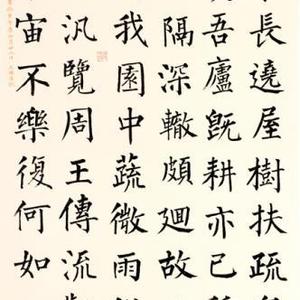 長遶屋樹扶疏
吾廬既耕亦已
隔深轍頗迴故
我園中蔬微雨
汎覽周王傳流
宙不樂復何如